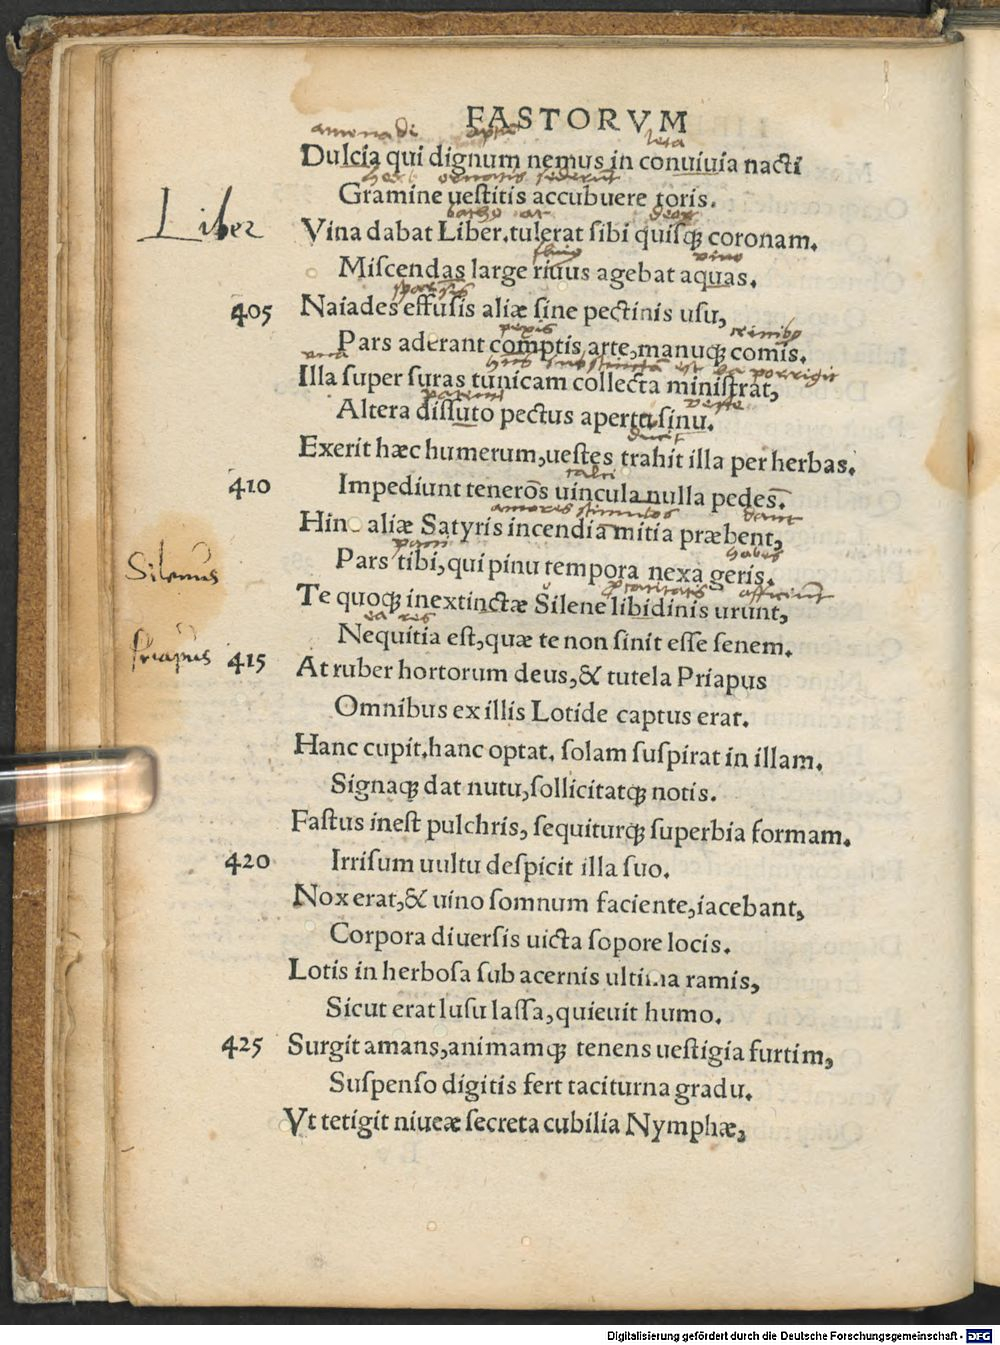 FASTORVM
Dulcia qui dignum nemus in conuiuia nacti
herb ornatis sederunt
Gramine uestitis accubuere toris.
Liber
Vina dabat Liber.tulerat sibi quisq; coronam.
vino
Miscendas large riuus agebat aquas.
sparsis
405 Naiades effusis aliæ sine pectinis usu,
pexis
Pars aderant comptis arte, manuq; comis.
una
Illa super suras tunicam collecta ministrat,
veste
Altera dissuto pectus aperta sinu.
Exerit hæc humerum,uestes trahit illa per herbas.
calcei
410 Impediunt teneros uincula nulla pedes.
amores stimulos dant
Hinc aliæ Satyris incendia mitia præbent,
pani habes
Pars tibi, qui pinu tempora nexa geris.
Silenus
afficiunt
Te quoq; inextinctæ Silene libidinis urunt,
ea res
Nequitia est,quæ te non sinit esse senem.
Priapus
415 At ruber hortorum deus,& tutela Priapus
Omnibus ex illis Lotide captus erat.
Hanc cupit.hanc optat. solam suspirat in illam.
Signaq; dat nutu,sollicitatq; notis.
Fastus inest pulchris, sequiturq; superbia formam.
420 Irrisum uultu despicit illa suo.
Nox erat,& uino somnum faciente,iacebant,
Corpora diuersis uicta sopore locis.
Lotis in herbosa sub acernis ultima ramis,
Sicut erat lusu lassa,quieuit humo.
425 Surgit amans,animamq; tenens uestigia furtim,
Suspenso digitis fert taciturna gradu.
Vt tetigit niueæ secreta cubilia Nymphæ,
Digitalisierung gefördert durch die Deutsche Forschungsgemeinschaft - DFG